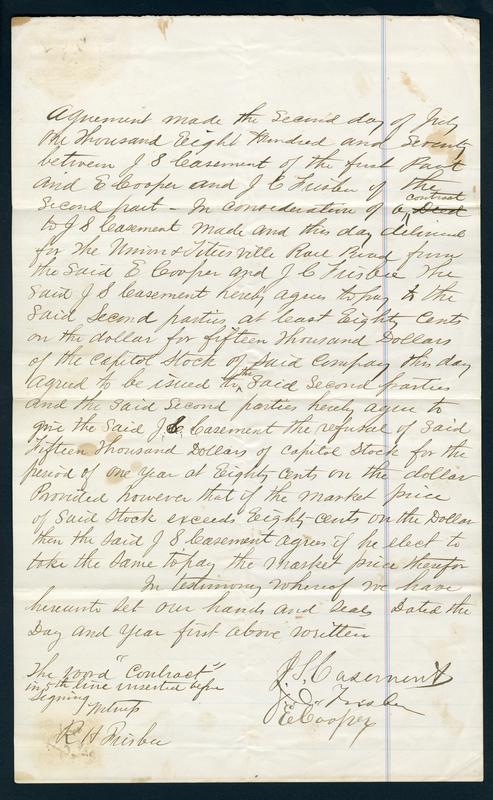 Agreement made the Second day of July
One Thousand Eight Hundred and Seventy
between J S Casement of the first Part
and E Cooper and J C Frisbie of the
Second part - In consideration of a contract Deed
to J S Casement made and this day delivered
for The Union & Titusville Rail Road from
the Said E Cooper and J C Frisbie The
Said J S Casement hereby agrees to pay to the
Said Second parties at least Eighty Cents
on the dollar for fifteen Thousand Dollars
of the Capitol Stock of Said Company this day
agreed to be issued the Said Second parties
and the Said Second parties hereby agree to
give the Said J S Casement the refusal of Said
Fifteen Thousand Dollars of Capitol Stock for the
period of one year at Eighty Cents on the dollar
Provided however that if the market price
of Said Stock exceeds Eighty cents on the Dollar
then the Said J S Casement agrees if he elect to
take the Same to pay the market price therefor
In testimony whereof we have
hereunto Set our hands and Seals Dated the
Day and Year first above written
The word "Contract"
in 5th line inserted before
Signing
Witness
R H Frisbie
J. S. Casement
J. C. Frisbie
E Cooper